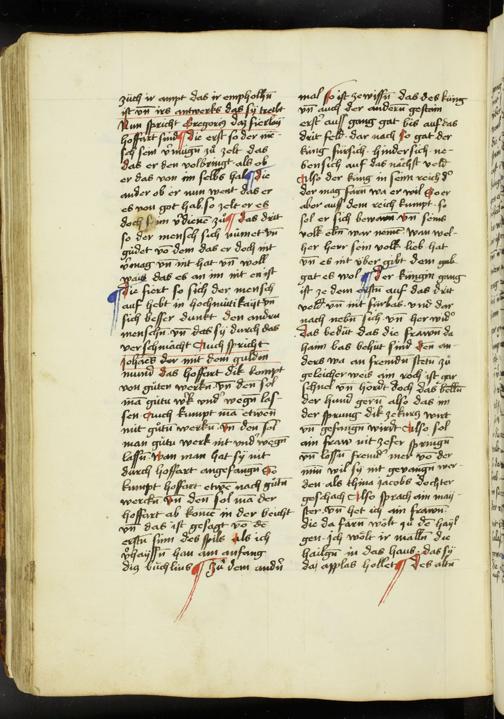 zuͦch ir ampt das ir empholhn̄
ist vn̄ irs antwerks das sy treibt
Nun spricht Gregorius das fierlay
hoffart sind die erst so der me-
sch sein v̄mugn̄ zuͦ zelt das
das er den volbringt als ob
er das von im selbs hab die
ander ob er nun went das er
es von got hab so zelt er es
doch seim v̄dienē zuͦ das drit
so der mensch sich ruͤmet vn̄
guͤdet vō dem das er doch nit
v̄mag vn̄ nit hat vn̄ wolt
waiß das es an im nit en ist
die fiert so sich der mensch
auf hebt in hochmuͤtikayt vn̄
sich besser dunkt den andrn̄
menschn̄ vn̄ das sy durch das
verschmacht Auch spricht
Johānes der mit dem guldin
mund das hoffart dik kompt
von guͦten werkn̄ vn̄ den sol
mā guͦtū w̄k vnd wegn̄ las-
sen Auch kumpt mā etwen
mit guͦtn̄ werkn̄ vn̄ den sol
man guͦtu werk nit vnd wegn̄
lassn̄ wan man hat sy nit
durch hoffart angefangn̄ So
kumpt hoffart etwē nach guͦtn̄
werckn̄ vn̄ den sol mā der
hoffart ab komē in der beicht
vn̄ das ist gesagt vō dē
erstn̄ sinn des spils Als ich
v̄haissn̄ han am anfang
diß buͤchlins Zuͦ dem andn̄
mal so ist ze wissn̄ das des kuͤng
vn̄ auch der andern gestain
erst auss gang gat bis auf das
drit feld dar nach so gat der
kuͤng fuͤrsich hindersich ne-
bensich auf das naͤchst veld
Also der kuͤng in seim reich
der mag farn wa er wil So er
aber auss dem reich kumpt so
sol er sich bewarn vn̄ seins
volk ebn̄ war nemē wan wel-
her herr sein volk lieb hat
vn̄ es nit uͤber gibt dem
gat es wol der kuͤngin gang
ist ze dem erstn̄ auf das drit
veld vn̄ nit fuͤrbas vnd dar
nach nebn̄ sich vn̄ her wid̄
das beduͤt das die frawn̄ da
haim bas behuͤt sind den an-
ders wa an fremdn̄ stetn̄ zuͦ
geleicher weis ain roch ist gar
schnel vn̄ hoͤrt doch das belln̄
der hund gern also das in
der sprung dik ze kurcz wirt
vn̄ gefangn̄ wirt Also sol
ain fraw nit ze ser springn̄
vn̄ lassn̄ fremd mer vō der
min wil sy nit gevangn̄ wer-
den als thina jacobs dochter
geschach Also sprach ain may-
ster vn̄ het ich ain frawn̄
die da farn woͤlt zuͦ dē hayl-
gen ich woͤlt ir malln̄ die
hailgn̄ in das haus das sy
das applas hollet Des altn̄